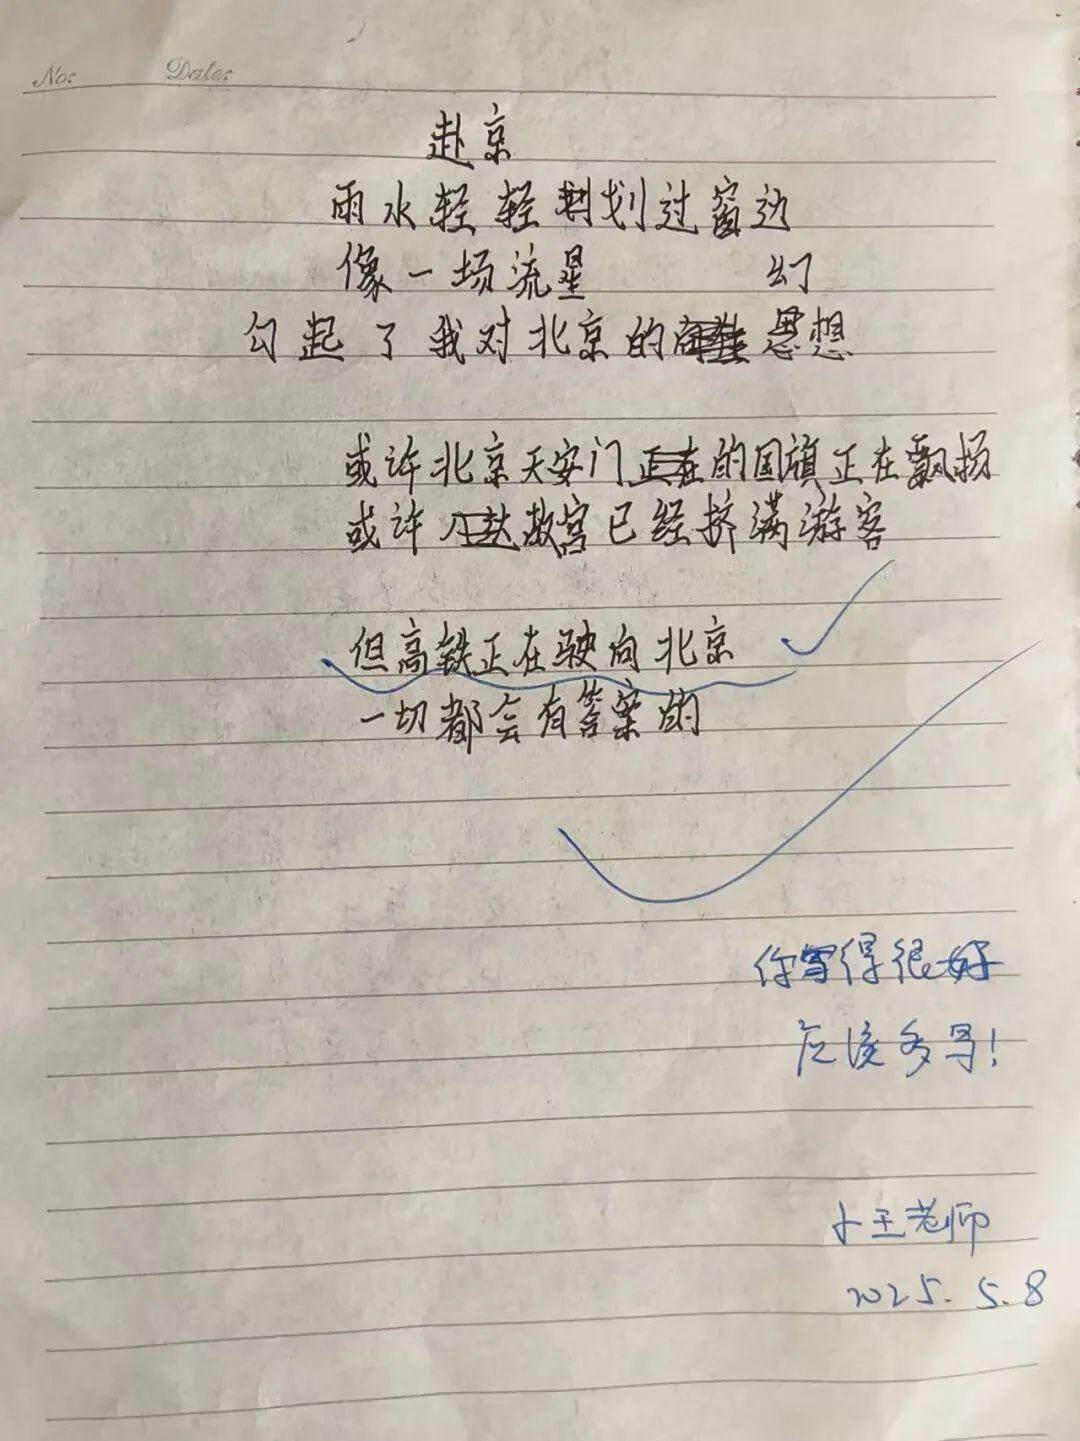 No:  Date:
赴京
雨水轻轻划过窗边
像一场流星
勾起了我对北京的幻想
或许北京天安门的国旗正在飘扬
或许故宫已经挤满游客
但高铁正在驶向北京
一切都会有答案的
你写得很好
应该多写!
小王老师
2025.5.8